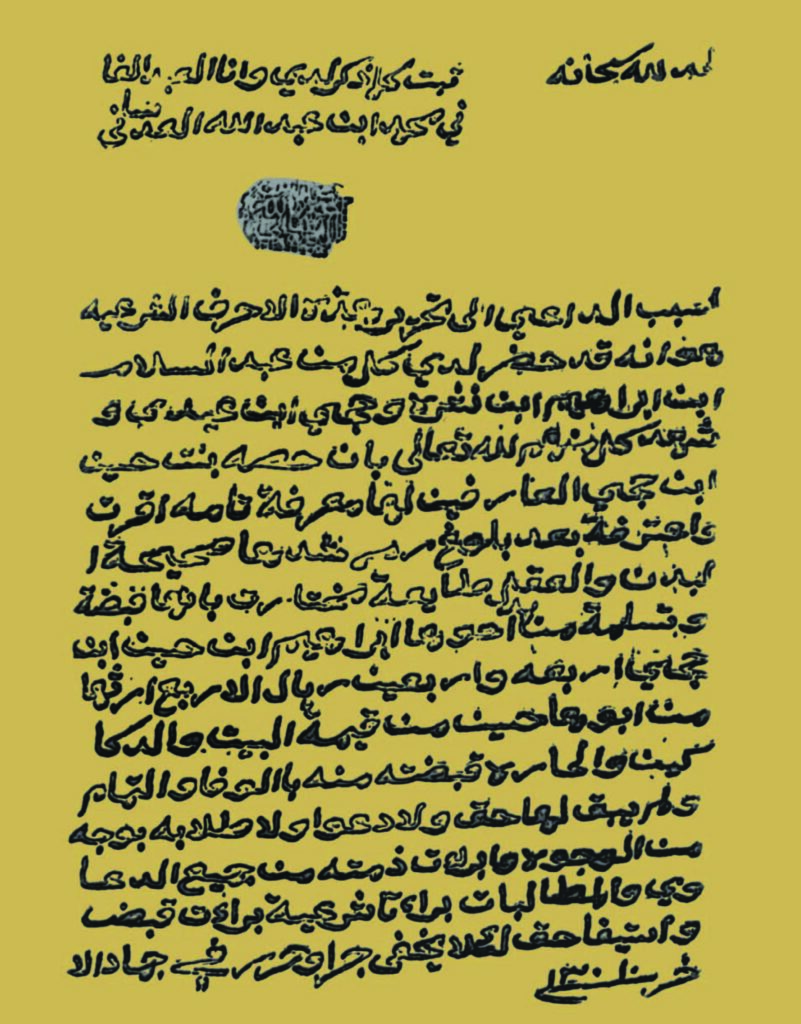 الحمد لله سبحانه
ثبت كلما ذكر لدي وانا العبد الفا
ني محمد ابن عبد الله العدساني
السبب الداعي الى تحرير هذه الاحرف الشرعيه
هو انه قد حضر لدي كل من عبد السلام
ابن ابراهيم ابن وحجي ابن عبدي و
شهد كل منهم لله تعالى بان حصه بنت حين
ابن حجي العارفين لها معرفة تامه اقرت
واعترفة بعد بلوغ رشدها صحيحة ا
لبدن والعقل طايعة مختارت بانها قبضة
وتسلمة من اخوها ابراهيم ابن حين ابن
حجي اربعه واربعين ريال الا ربع ارثها
من ابوها حين من قيمة البيت والدكا
كين والحاره قبضته منه بالوفا والتمام
ولم يبق لها حق ولا دعوا ولا طلابه بوجه
من الوجوه وابرات ذمته من جميع الدعا
وي والمطالبات براءتا شرعية براءت قبض
واستيفا حق لئلا يخفى جرا وحرر في جماد الا
خر سنة